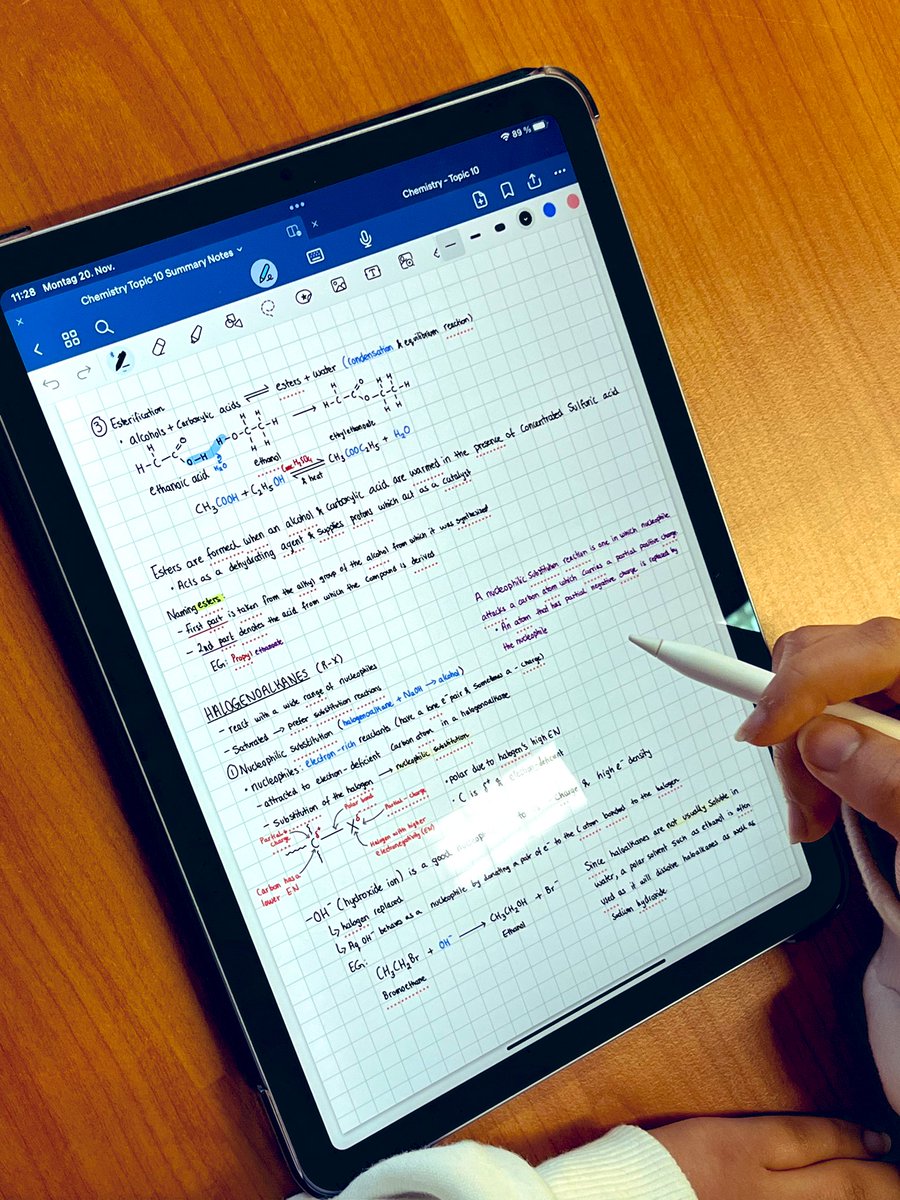 11:28 Montag 20. Nov.
89 %
Chemistry Topic 10 Summary Notes
Chemistry - Topic 10
③ Esterification
• alcohols + carboxylic acids ⇌ esters + water (condensation & equilibrium reaction)
ethanoic acid
H₂O
ethanol
ethylethanoate
CH₃COOH + C₂H₅OH ⇌ CH₃COOC₂H₅ + H₂O
Conc H₂SO₄
& heat
Esters are formed when an alcohol & carboxylic acid are warmed in the presence of concentrated Sulfuric acid
• Acts as a dehydrating agent & supplies protons which act as a catalyst
Naming esters:
- first part is taken from the alkyl group of the alcohol from which it was synthesised
- 2nd part denotes the acid from which the compound is derived
EG: Propyl ethanoate
A nucleophilic substitution reaction is one in which nucleophile
attacks a carbon atom which carries a partial positive charge
• An atom that has partial negative charge is replaced by
the nucleophile
HALOGENOALKANES (R-X)
- react with a wide range of nucleophiles
- Saturated → prefer substitution reactions
① Nucleophilic substitution (halogenoalkane + NaOH → alcohol)
• nucleophiles: electron-rich reactants (have a lone e⁻ pair & sometimes a - charge)
- attracted to electron-deficient carbon atom in a halogenoalkane
- Substitution of the halogen → nucleophilic substitution
• polar due to halogen's high EN
• C is δ⁺ & electron-deficient
Partial +
charge
Polar bond
Partial - charge
δ⁺
C
X
δ⁻
Halogen with higher
electronegativity (EN)
Carbon has a
lower EN
- OH⁻ (hydroxide ion) is a good to charge & high e⁻ density
↳ halogen replaced
↳ Aq OH⁻ behaves as a nucleophile by donating a pair of e⁻ to the C atom bonded to the halogen
EG:
CH₃CH₂Br + OH⁻ → CH₃CH₂OH + Br⁻
Bromoethane
Ethanol
Since haloalkanes are not usually soluble in
water, a polar solvent such as ethanol is often
used as it will dissolve haloalkanes as well as
Sodium hydroxide